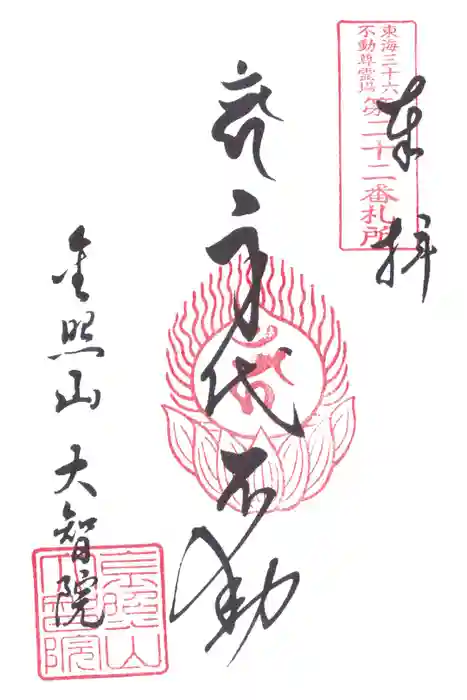 東海三十六
不動尊霊場
第二十二番札所
奉拝
身代不動
金照山 大智院